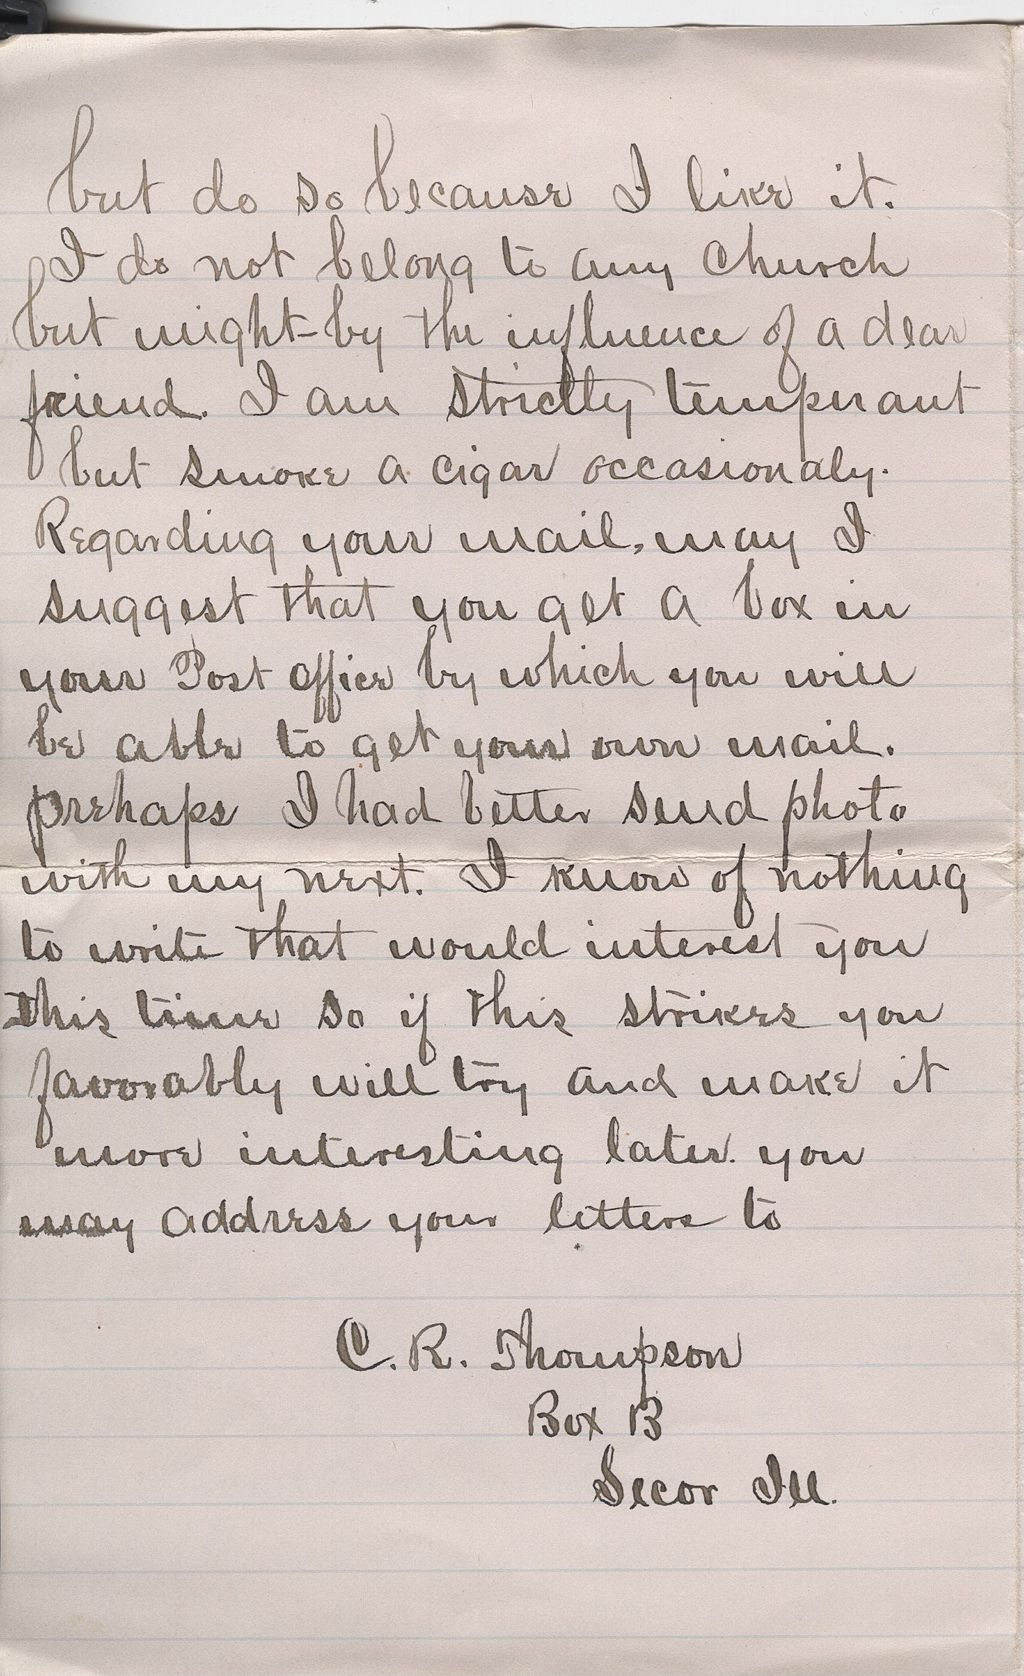 but do so because I like it.
I do not belong to any church
but might by the influence of a dear
friend. I am strictly temperant
but smoke a cigar occasionaly.
Regarding your mail, may I
suggest that you get a box in
your Post office by which you will
be able to get your own mail.
prehaps I had better send photo
with my next. I know of nothing
to write that would interest you
this time so if this strikes you
favorably will try and make it
more interesting later. you
may address your letters to
C. R. Thompson
Box B
Secor Ill.